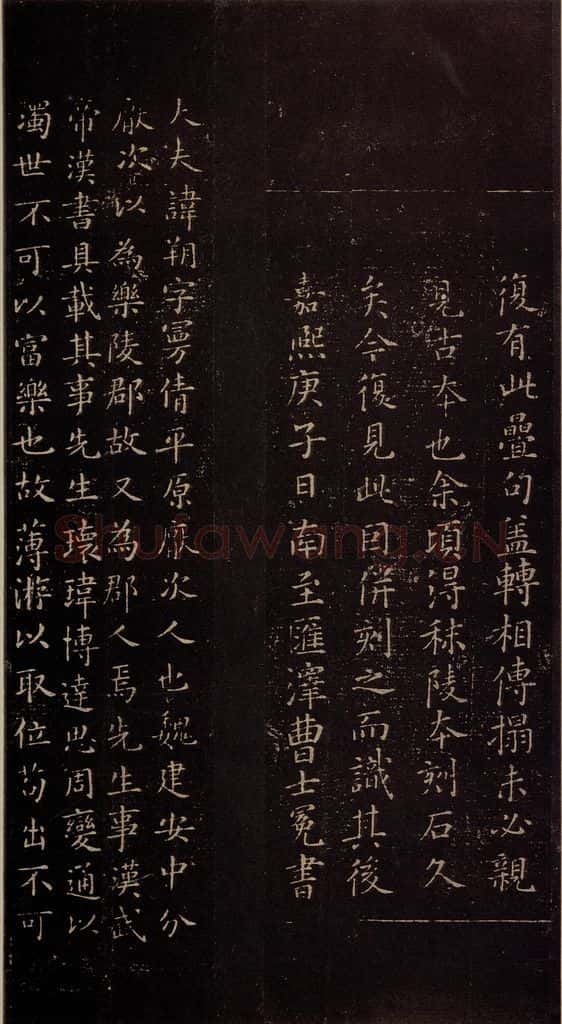 復有此疊句蓋轉相傳搨未必親
見古本也余頃得秣陵本刻石久
矣今復見此因併刻之而識其後
嘉熙庚子日南至匯澤曹士冕書
大夫諱朔字曼倩平原厭次人也魏建安中分
厭次以為樂陵郡故又為郡人焉先生事漢武
帝漢書具載其事先生瓌瑋博達思周變通以
濁世不可以富樂也故薄游以取位苟出不可
Shufawang.CN